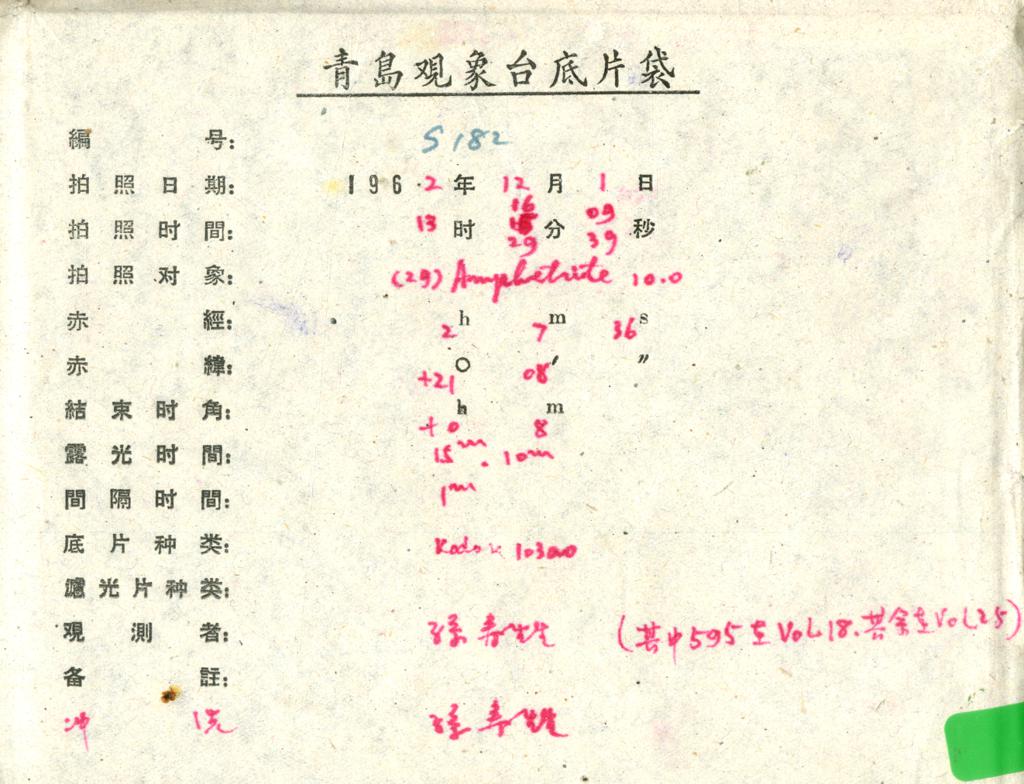 青島观象台底片袋
編号: S182
拍照日期: 1962年12月1日
16 09
拍照时間: 13时 分 秒
29 39
拍照对象: (29) Amphetrite 10.0
赤經: 2h 7m 36s
赤緯: +21° 08′ ″
結束时角: +0h 8m
露光时間: 15m. 10m
間隔时間: 1m
底片种类: Kodak 103aO
濾光片种类:
观測者: 孫寿 (其中595在Vol.18.其余在Vol.25)
备註:
冲洗 孫寿